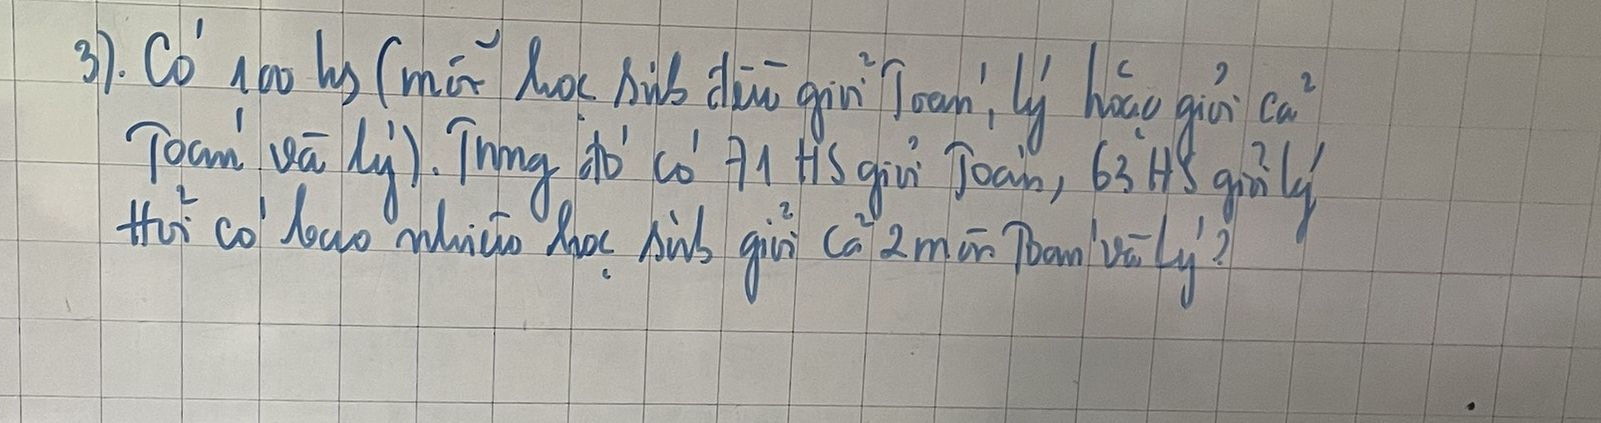 3). Có 100 hs (mỗi học sinh đều giỏi Toán, lý hoặc giỏi cả
Toán và lý). Trong đó có 71 HS giỏi Toán, 63 HS giỏi lý
Hỏi có bao nhiêu học sinh giỏi cả 2 môn Toán và Lý?